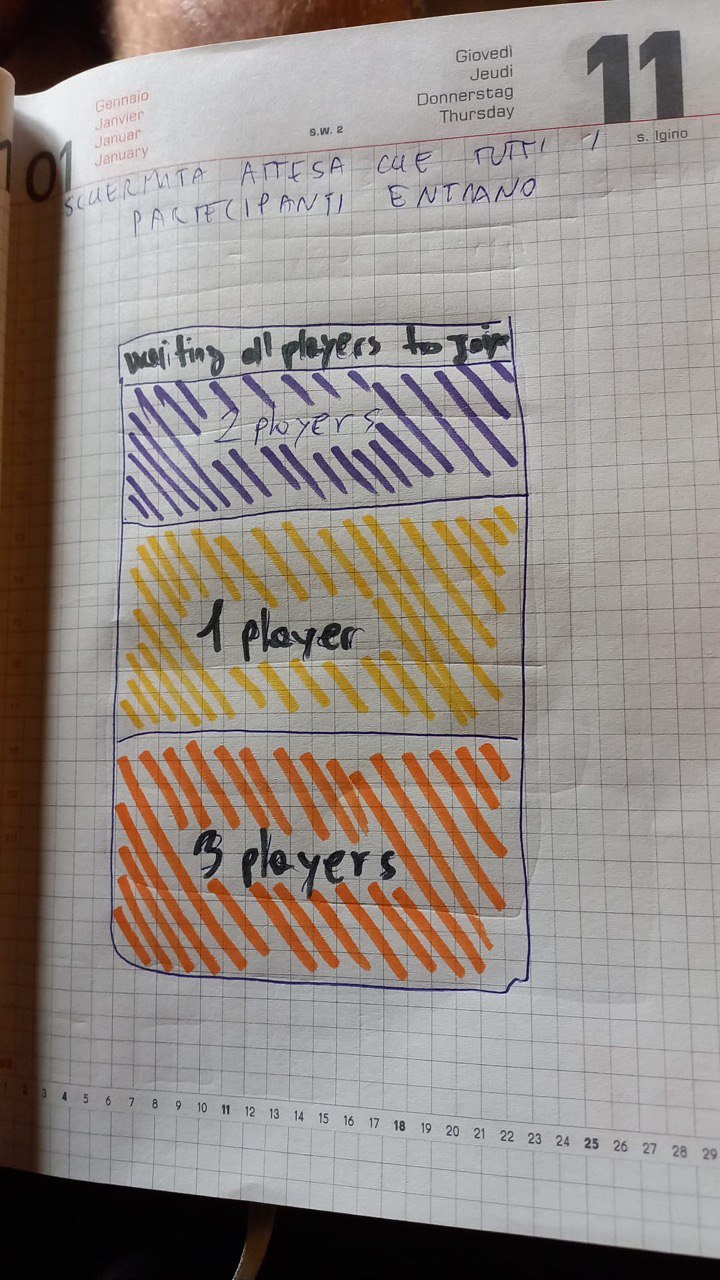 Gennaio
Janvier
Januar
January
01
S.W. 2
Giovedì
Jeudi
Donnerstag
Thursday
11
s. Igino
SCHERMATA ATTESA CHE TUTTI I
PARTECIPANTI ENTRANO
waiting all players to join
2 players
1 player
3 players
1 2 3 4 5 6 7 8 9 10 11 12 13 14 15 16 17 18 19 20 21 22 23 24 25 26 27 28 29